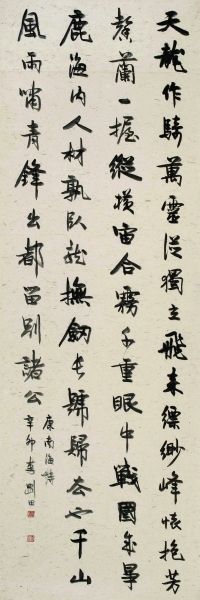 天龍作騎萬靈從獨立飛來縹緲峰懷抱芳
馨蘭一握縱橫宙合霧千重眼中戰國成爭
鹿海内人材孰臥龍撫劍長號歸去也千山
風雨嘯青鋒出都留別諸公
康南海詩
辛卯春